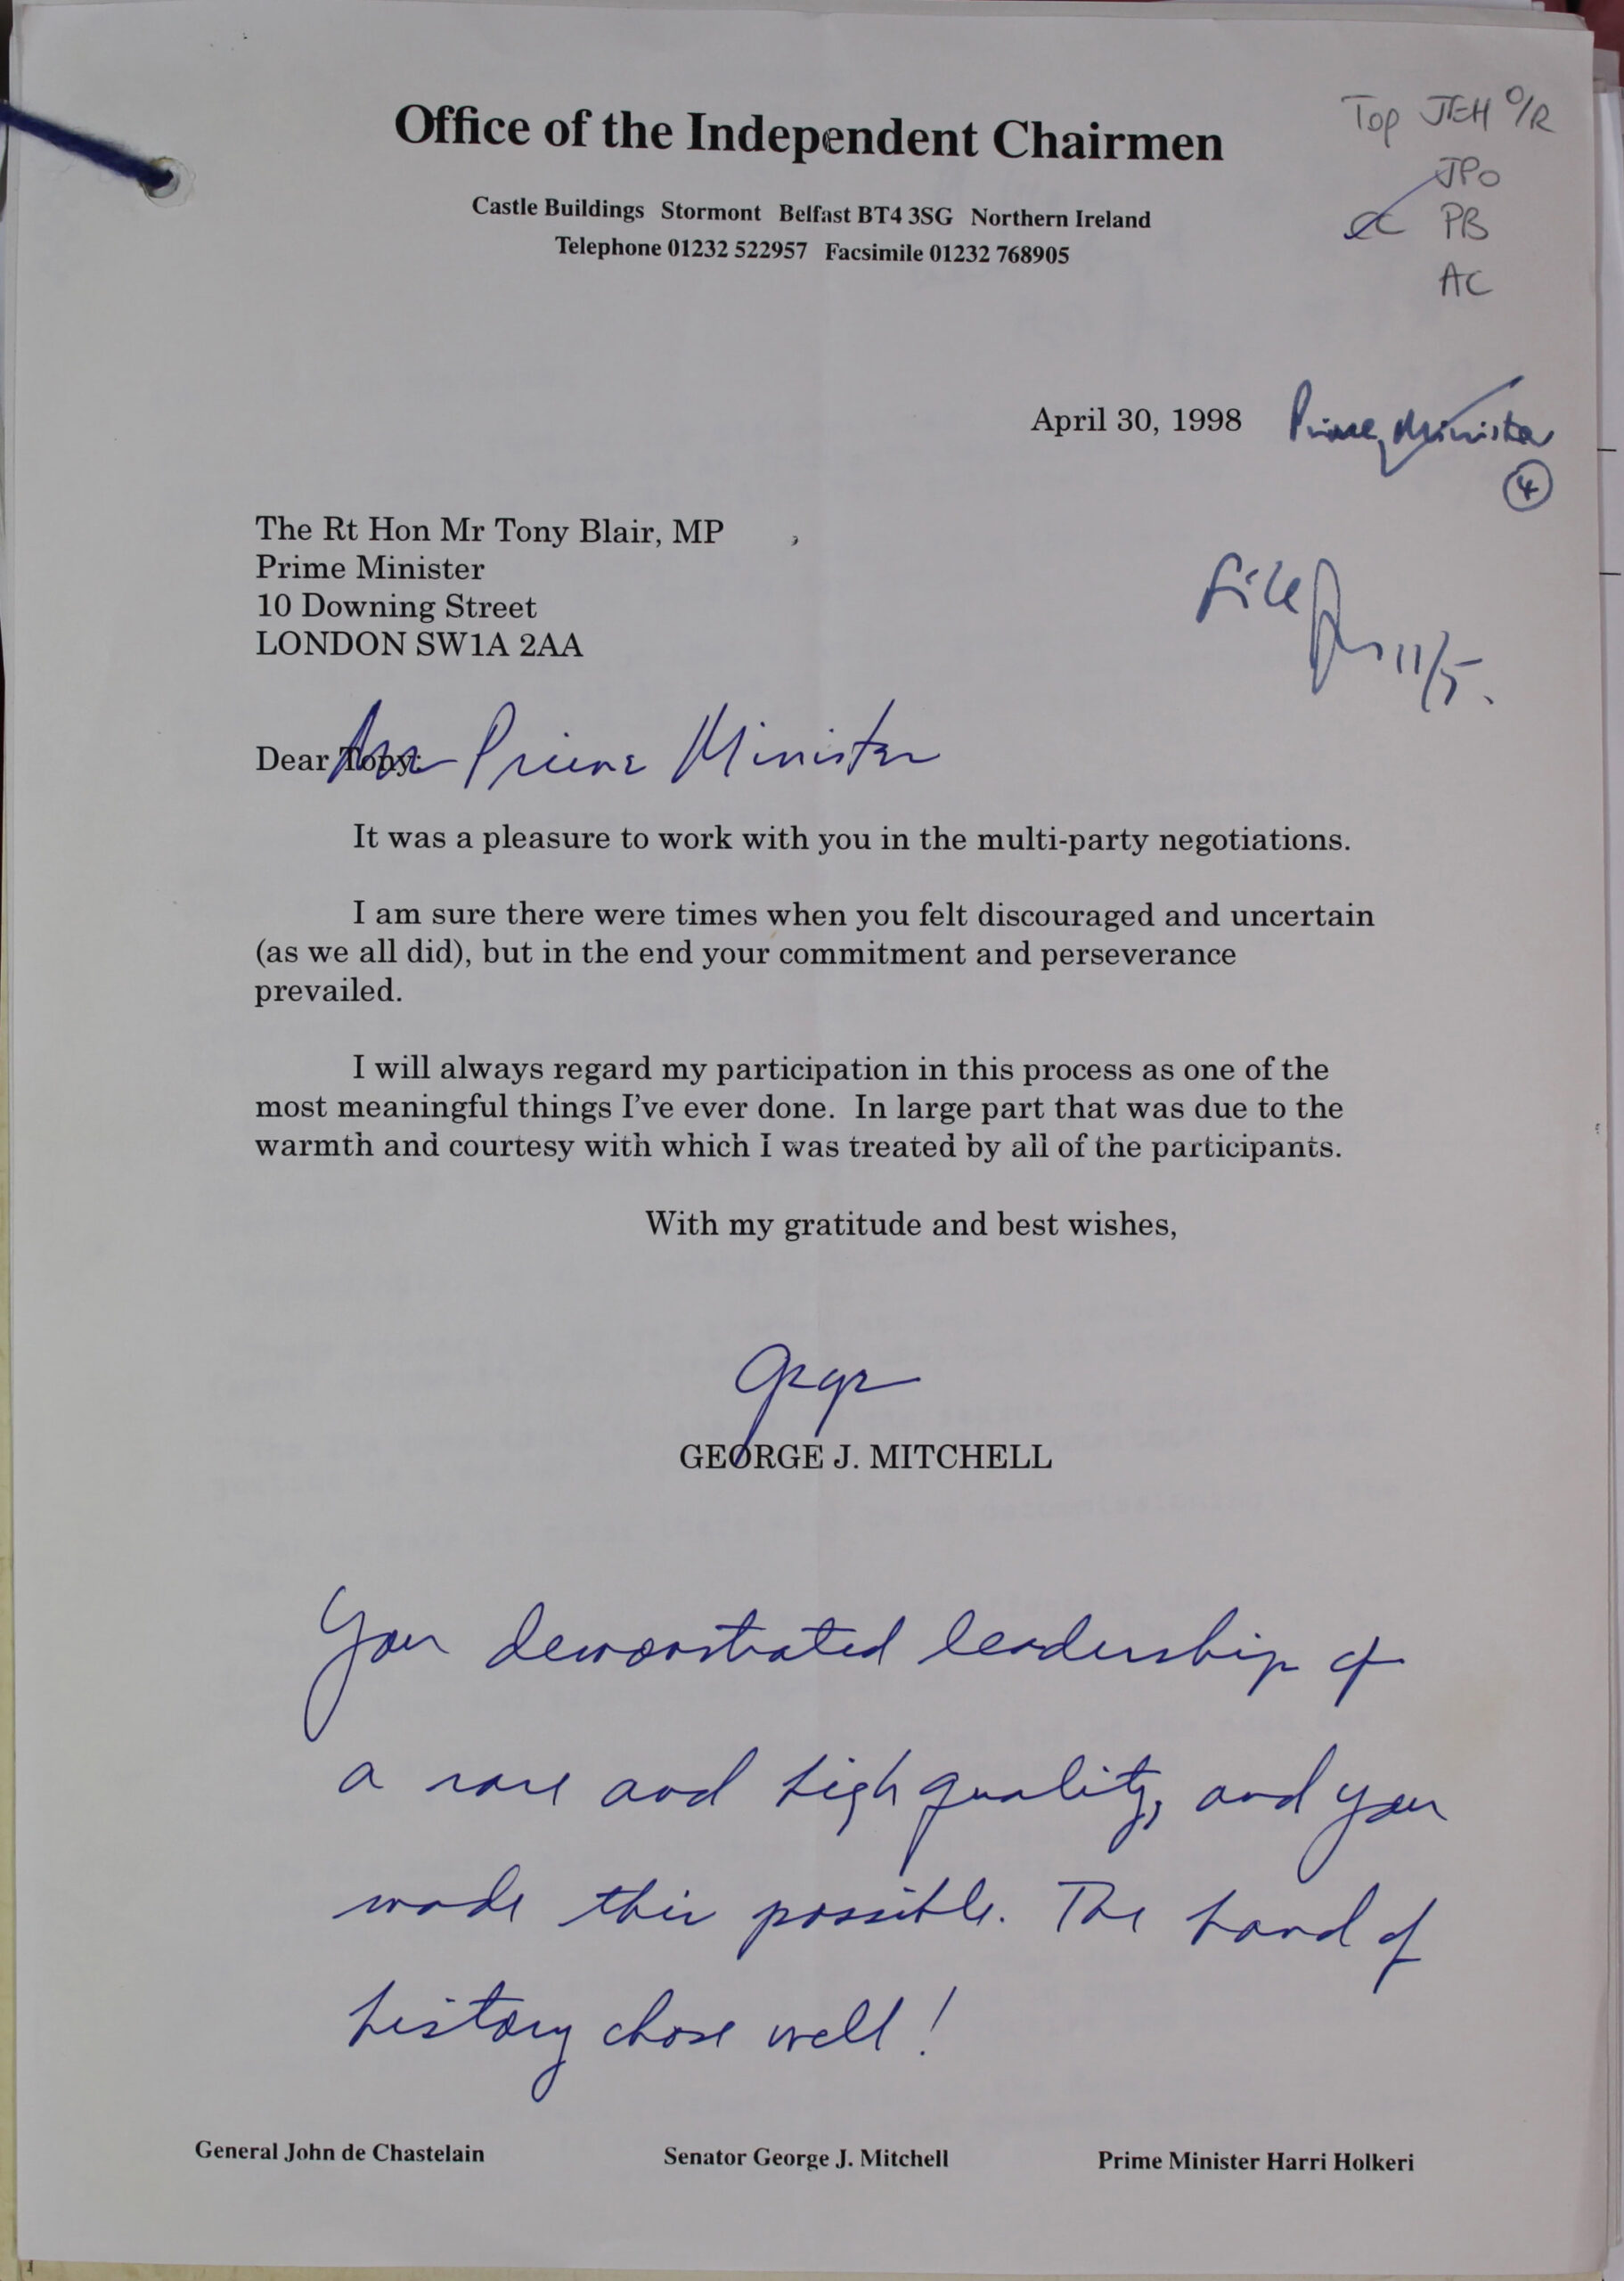 Office of the Independent Chairmen
Castle Buildings Stormont Belfast BT4 3SG Northern Ireland
Telephone 01232 522957 Facsimile 01232 768905
Top JEH O/R
JPO
cc PB
AC
April 30, 1998
Prime Minister
4
The Rt Hon Mr Tony Blair, MP
Prime Minister
10 Downing Street
LONDON SW1A 2AA
File
11/5.
Dear Tony: Mr Prime Minister
It was a pleasure to work with you in the multi-party negotiations.
I am sure there were times when you felt discouraged and uncertain
(as we all did), but in the end your commitment and perseverance
prevailed.
I will always regard my participation in this process as one of the
most meaningful things I've ever done. In large part that was due to the
warmth and courtesy with which I was treated by all of the participants.
With my gratitude and best wishes,
George
GEORGE J. MITCHELL
You demonstrated leadership of
a rare and high quality, and you
made this possible. The hand of
history chose well!
General John de Chastelain Senator George J. Mitchell Prime Minister Harri Holkeri